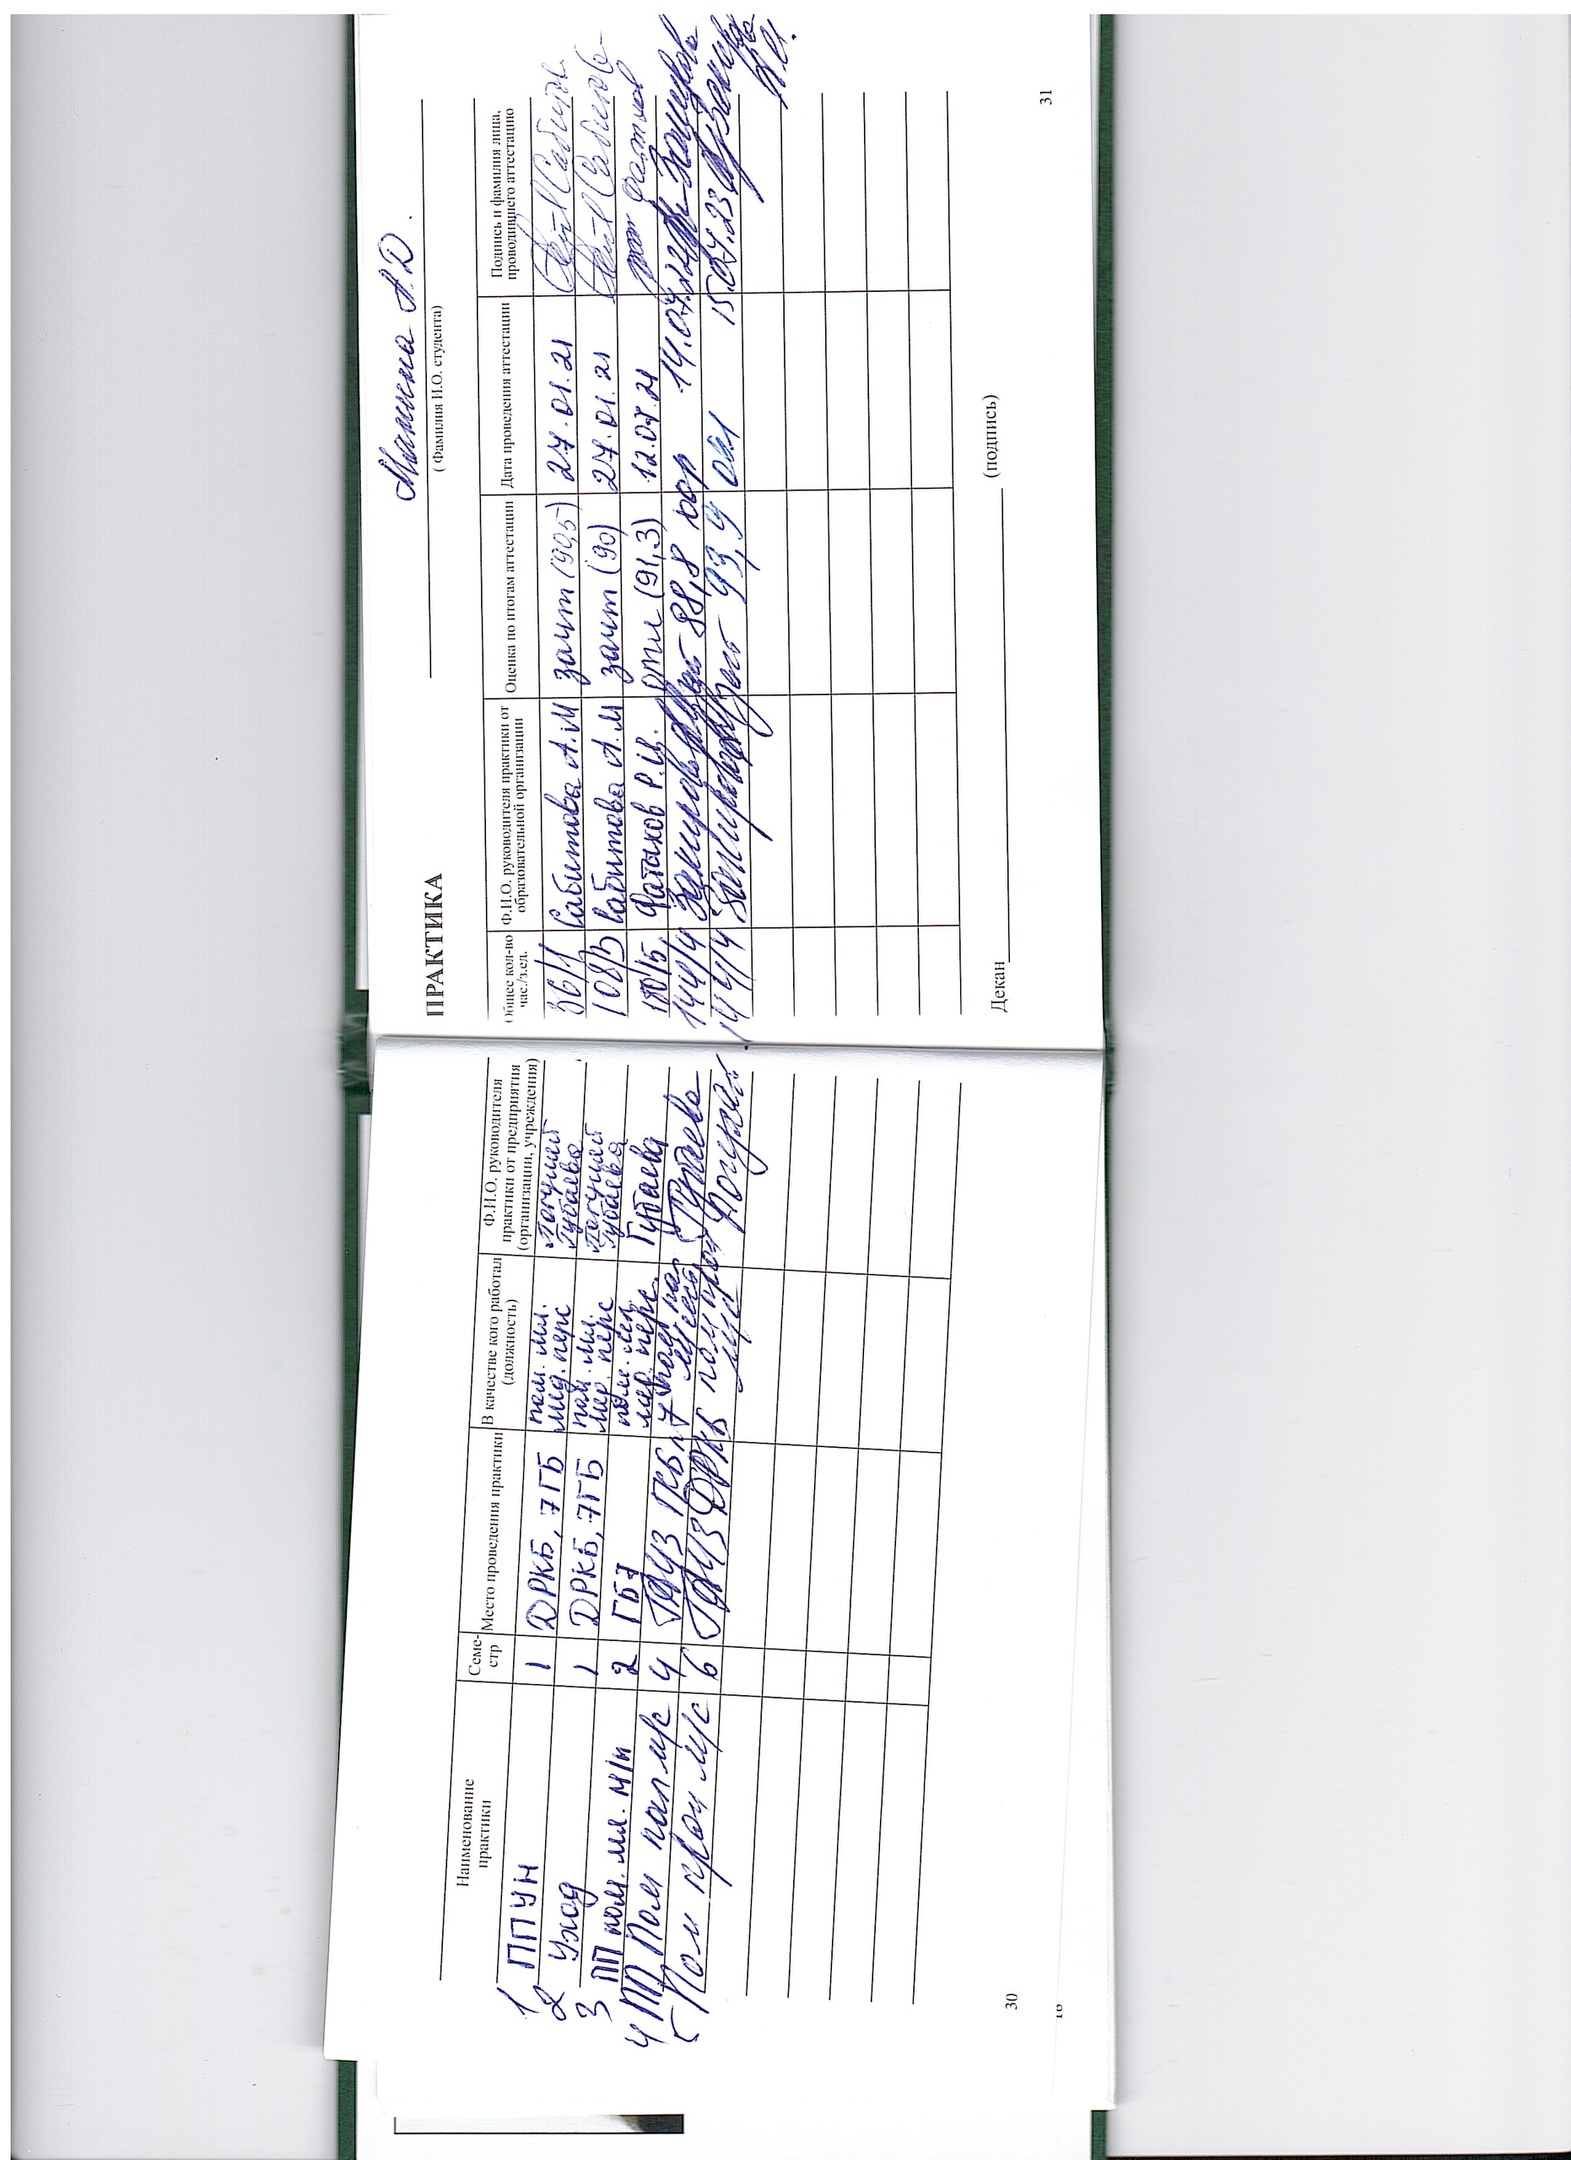 Наименование практики
Семе-стр
Место проведения практики
В качестве кого работал (должность)
Ф.И.О. руководителя практики от предприятия (организации, учреждения)
1 ППУН 1 ДРКБ, 7ГБ пом. мл. мед. перс Губаева
2 Уход 1 ДРКБ, 7ГБ пом. мл. мед. перс Губаева
3 ПП пом. мл. м/п 2 ГБ7 пом. мл. мед. перс. Губаева
4 ПП Пом пал м/с 4 ГАУЗ ГКБ №7 Губаева
5 Пом проц м/с 6 ГАУЗ ДРКБ пом проц м/с
30
16
ПРАКТИКА
Мапина А.Д.
( Фамилия И.О. студента)
Общее кол-во час./з.ед.
Ф.И.О. руководителя практики от образовательной организации
Оценка по итогам аттестации
Дата проведения аттестации
Подпись и фамилия лица, проводившего аттестацию
36/1 Сабитова А.М зачт (90,5) 27.01.21 Сабитов
108/3 Сабитова А.М зачт (90) 27.01.21 Сабитова
180/5 Фатыхов Р.И. отл (91,3) 12.07.21
144/4 Закирова 88,8 хор 14.07.22 Закирова
144/4 93,4 отл 15.07.23
Декан
(подпись)
31